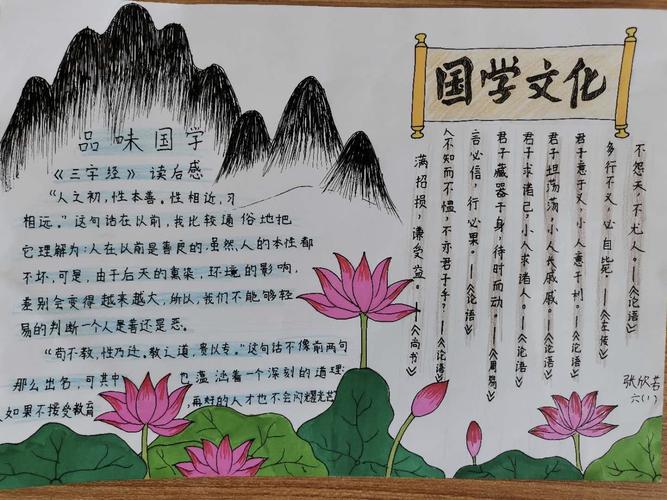 品味国学
《三字经》读后感
“人之初,性本善。性相近,习
相远。”这句话在以前,我比较通俗地把
它理解为:人在以前是善良的.虽然,人的本性都
不坏,可是,由于后天的熏染,环境的影响,
差别会变得越来越大,所以,我们不能够轻
易的判断一个人是善还是恶。
“苟不教,性乃迁,教之道,贵以专。”这句话不像前两句
那么出名,可其中 也蕴涵着一个深刻的道理:
人如果不接受教育 ,再好的人才也不会闪耀光芒
国学文化
不怨天,不尤人。——《论语》
多行不义,必自毙。——《左传》
君子意于义,小人意于利。——《论语》
君子坦荡荡,小人长戚戚。——《论语》
君子求诸己,小人求诸人。——《论语》
君子藏器于身,待时而动。——《周易》
言必信,行必果。——《论语》
人不知而不愠,不亦君子乎?——《论语》
满招损,谦受益。——《尚书》
张欣若
六(1)